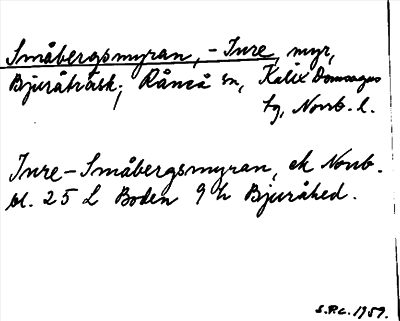 Småbergsmyran, - Inre, myr,
Bjuråträsk; Råneå sn, Kalix Domsagas
tg, Norrb. l.
Inre-Småbergsmyran, ek Norrb.
bl. 25 L Boden 9 h Bjuråhed.
S.P.C. 1959.